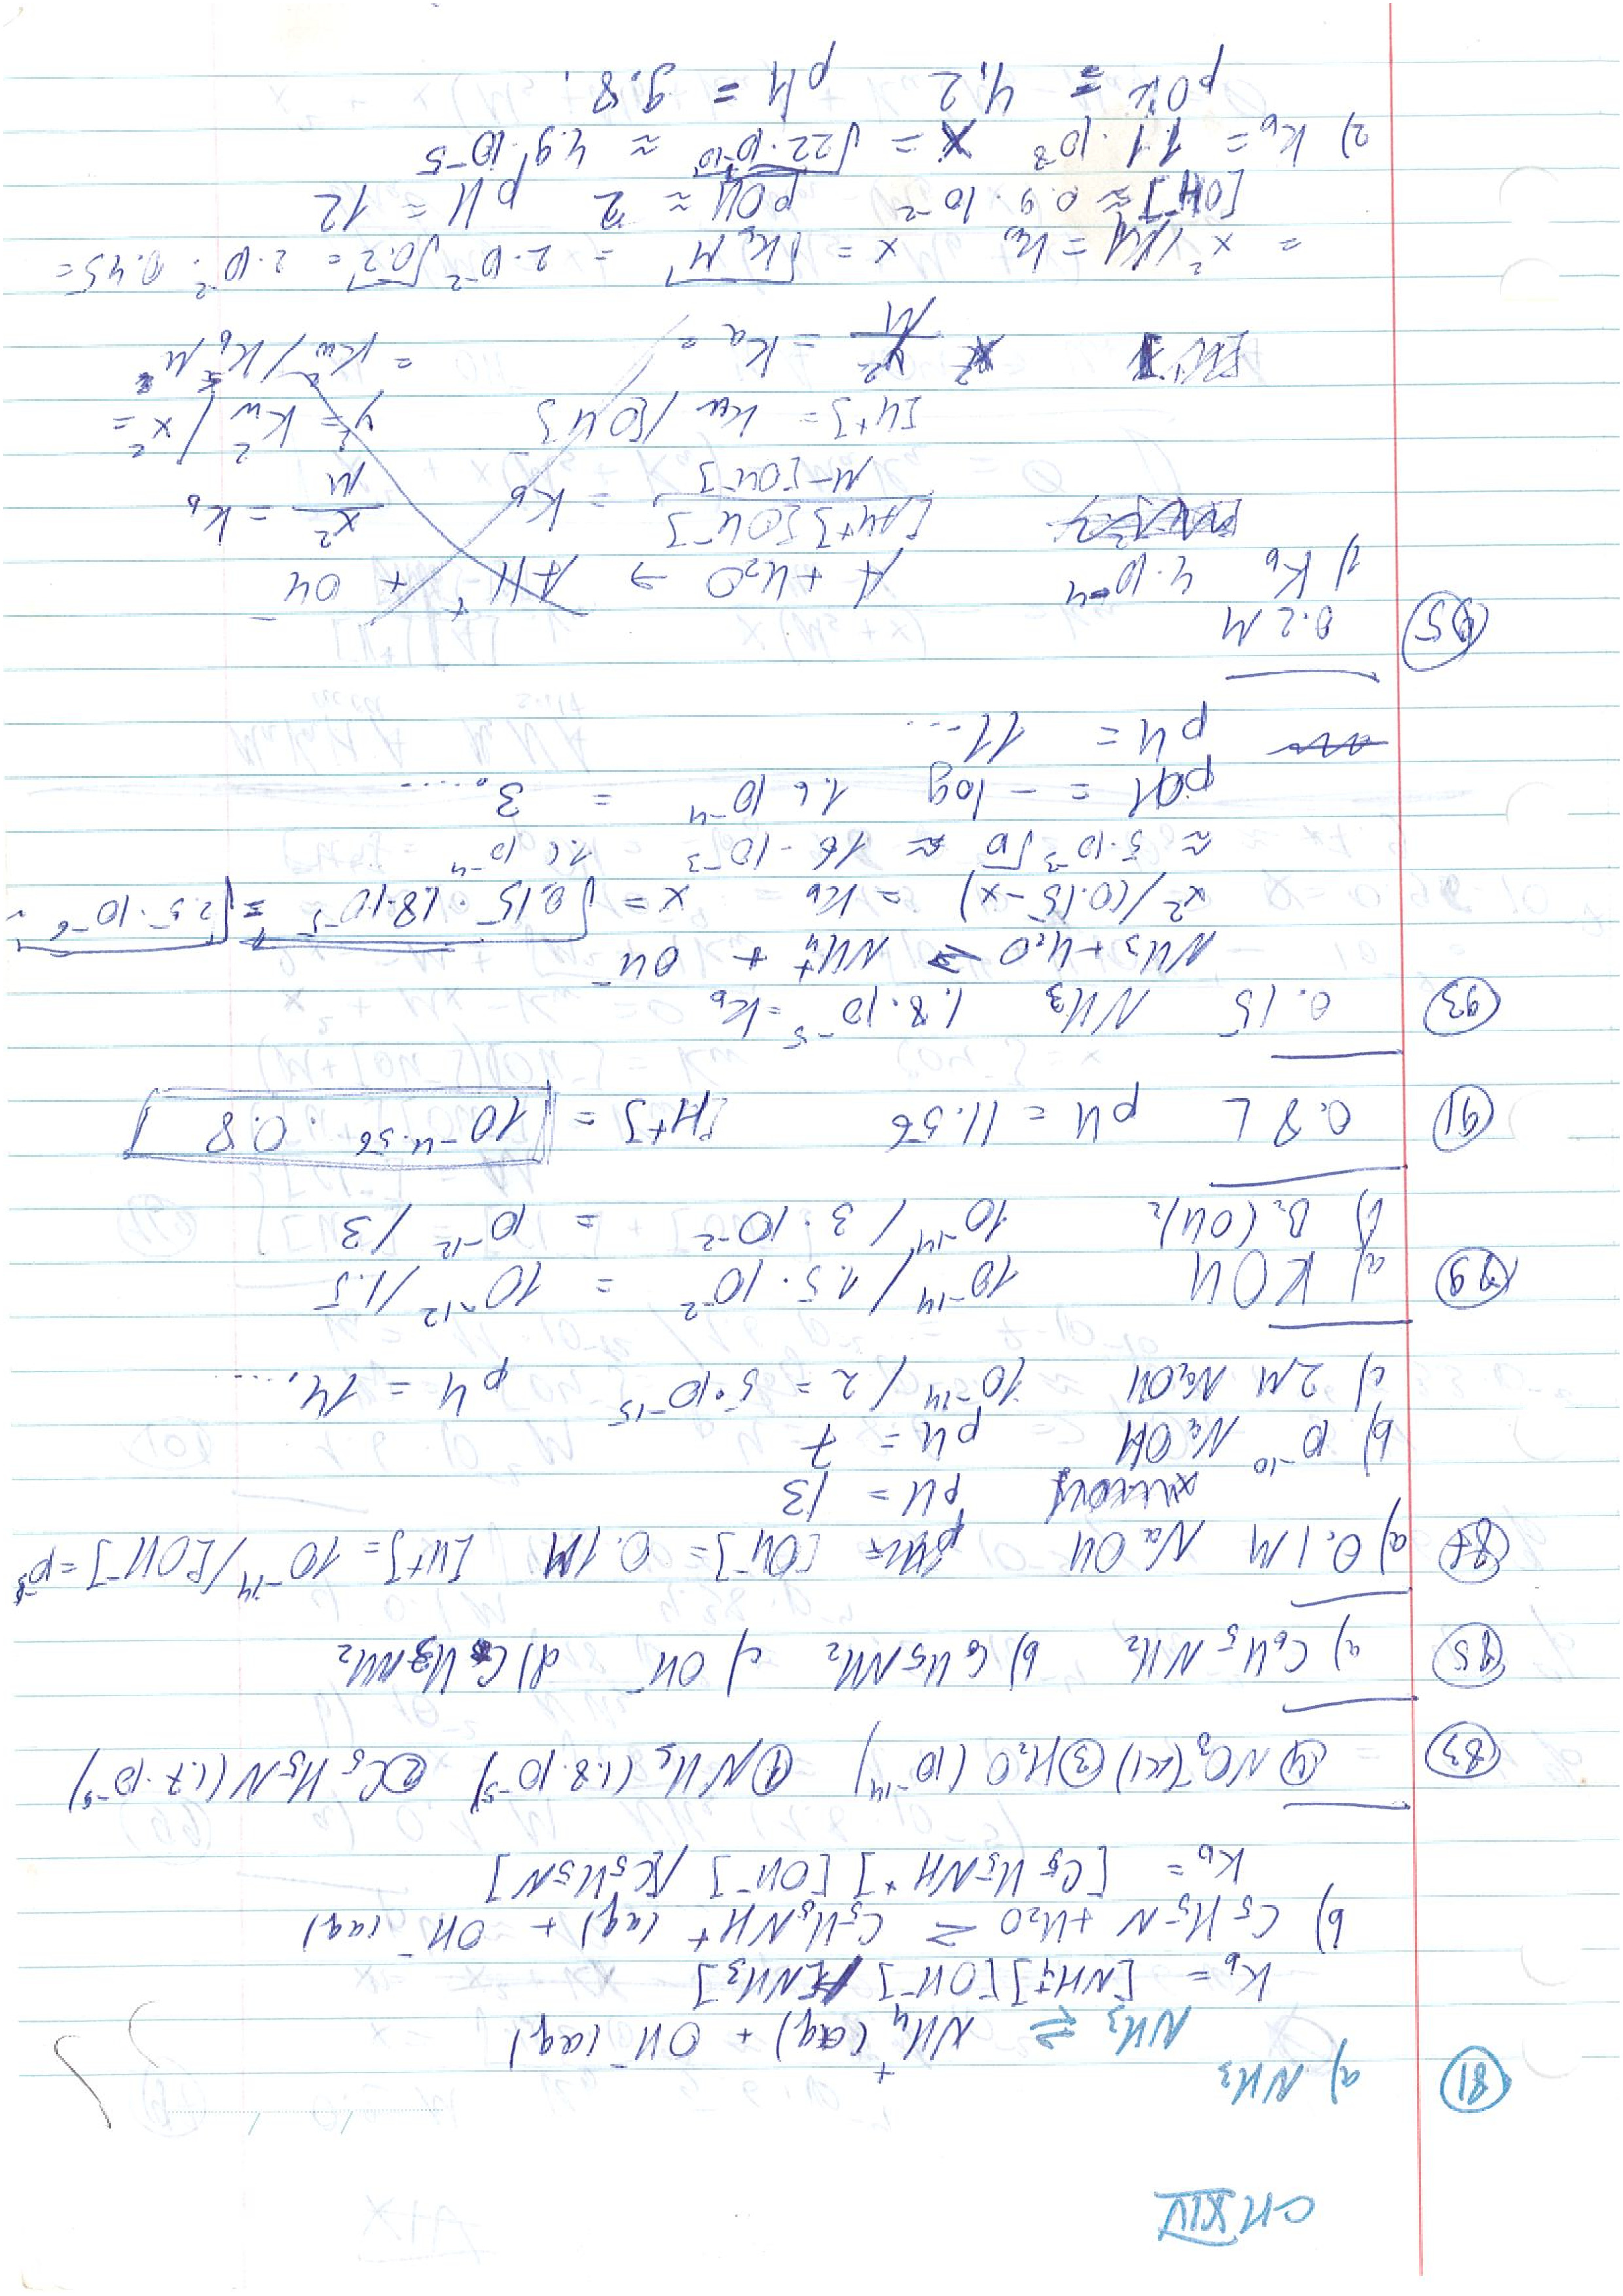 CH XIV
81 a) NH3
NH3 ⇌ NH4+ (aq) + OH- (aq)
Kb = [NH4+][OH-]/[NH3]
b) C5H5N + H2O ⇌ C5H5NH+ (aq) + OH- (aq)
Kb = [C5H5NH+][OH-]/[C5H5N]
83 ④ NO3- (<<1) ③ H2O (10^-14) ① NH3 (1.8·10^-5) ② C5H5N (1.7·10^-9)
85 a) C6H5NH2 b) C6H5NH2 c) OH- d) CH3NH2
87 a) 0.1M NaOH [OH-] = 0.1M [H+] = 10^-14/[OH-] =
pH = 13
b) 10^-10 NaOH pH = 7
c) 2M NaOH 10^-14/2 = 5·10^-15 pH = 14....
89 a) KOH 10^-14/1.5·10^-2 = 10^-12/1.5
b) Ba(OH)2 10^-14/3·10^-2 = 10^-12/3
91 0.8 L pH = 11.56 [H+] = 10^-4.56 · 0.8
93 0.15 NH3 1.8·10^-5 = Kb
NH3 + H2O ⇌ NH4+ + OH-
x^2/(0.15-x) = Kb x = √0.15·1.8·10^-5 = √2.5·10^-6
≈ 5·10^-3 √10 ≈ 16·10^-3 1.6 10^-4
pOH = -log 1.6 10^-4 = 3.....
pH = 11...
95 0.2M
1) Kb 4·10^-4 A + H2O → AH+ + OH-
[AH+][OH-]/M-[OH-] = Kb x^2/M = Kb
[H+] = Kw/[OH] y^2 = Kw^2/x^2 =
y^2/M = Ka = = Kw^2/Kb M^2
= x^2/M = Kb x = √Kb M = 2·10^-2 √0.2 = 2·10^-2 · 0.45 =
[OH-] ≈ 0.9·10^-2 pOH ≈ 2 pH = 12
2) Kb = 1.1·10^-8 x = √22·10^-10 ≈ 4.9·10^-5
pOH = 4.2 pH = 9.8.